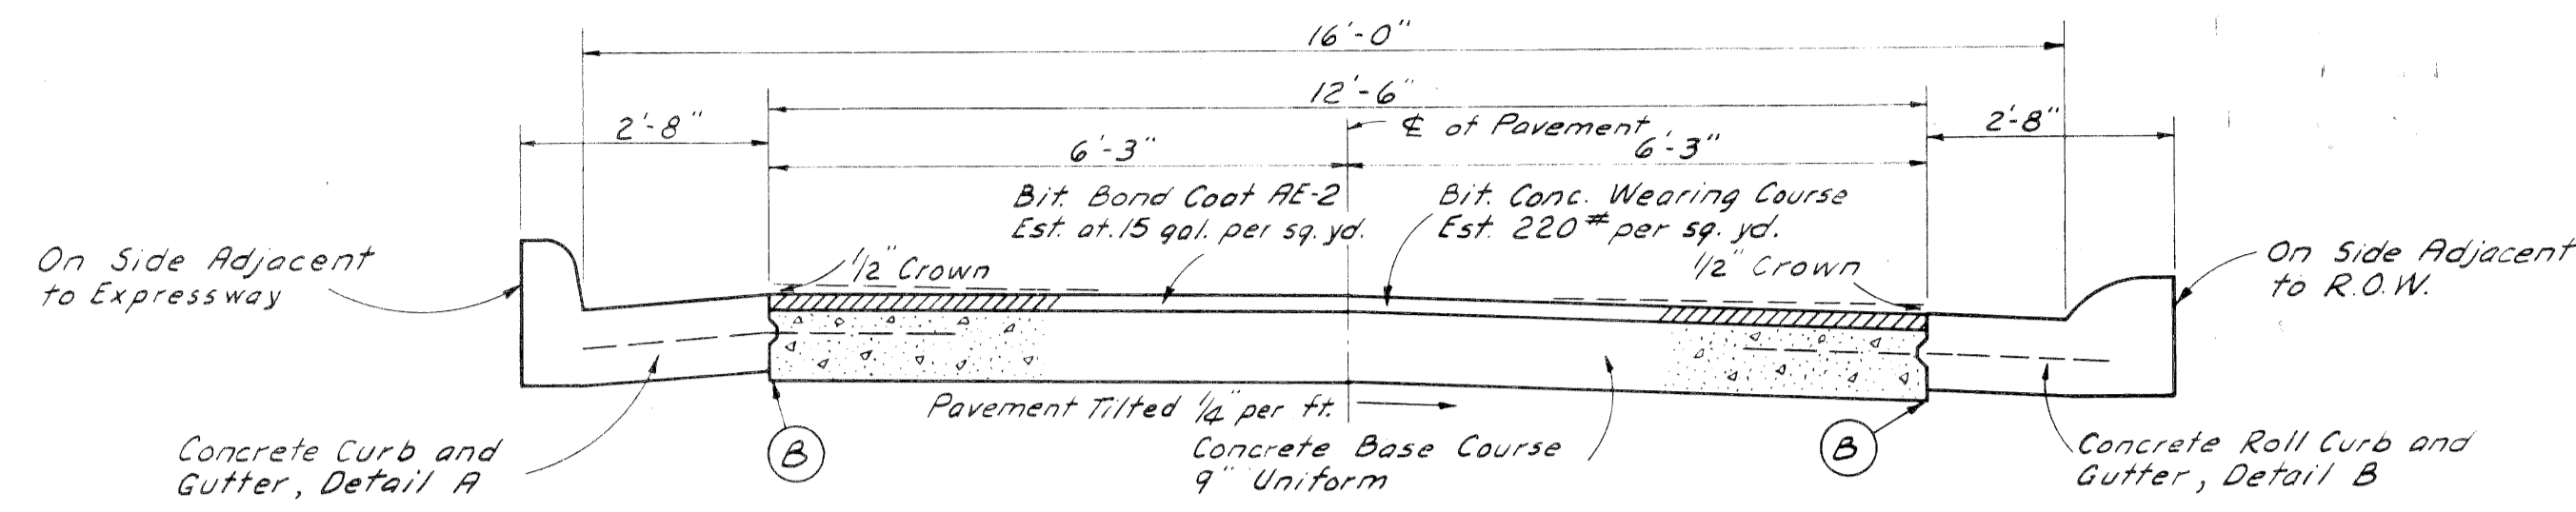 16'-0"
12'-6"
2'-8"
℄ of Pavement
2'-8"
6'-3"
6'-3"
Bit. Bond Coat AE-2
Est. at .15 gal. per sq. yd.
Bit. Conc. Wearing Course
Est. 220# per sq. yd.
On Side Adjacent
to Expressway
1/2" Crown
1/2" Crown
On Side Adjacent
to R.O.W.
Pavement Tilted 1/4" per ft.
Concrete Curb and
Gutter, Detail A
B
Concrete Base Course
9" Uniform
B
Concrete Roll Curb and
Gutter, Detail B